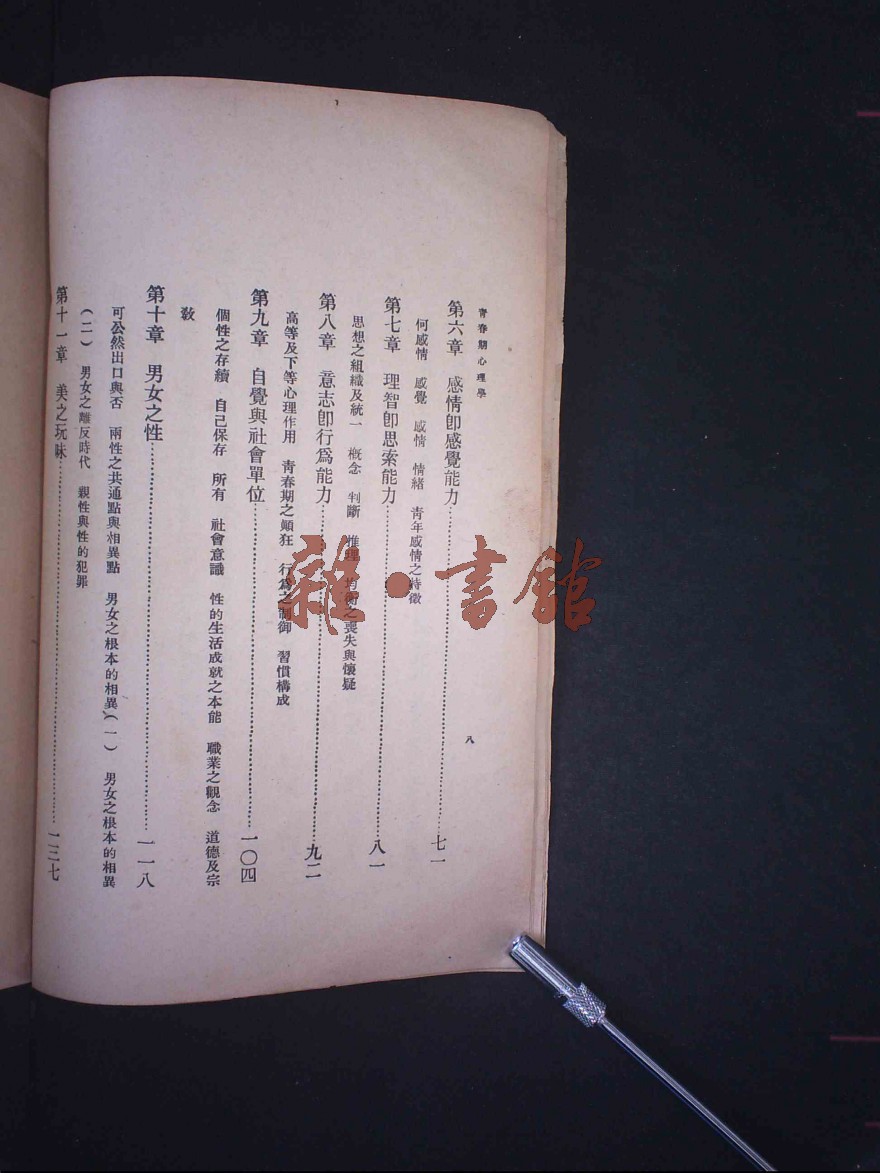 青春期心理學
八
第六章　感情卽感覺能力⋯⋯七一
何感情　感覺　感情　情緒　靑年感情之特徵
第七章　理智卽思索能力⋯⋯八一
思想之組織及統一　槪念　判斷　推理　均衡之喪失與懷疑
第八章　意志卽行爲能力⋯⋯九二
高等及下等心理作用　靑春期之顚狂　行爲之制御　習慣構成
第九章　自覺與社會單位⋯⋯一〇四
個性之存續　自己保存　所有　社會意識　性的生活成就之本能　職業之觀念　道德及宗
敎
第十章　男女之性⋯⋯一一八
可公然出口與否　兩性之共通點與相異點　男女之根本的相異（一）　男女之根本的相異
（二）　男女之離反時代　親性與性的犯罪
第十一章　美之玩味⋯⋯一三七
雜·書館